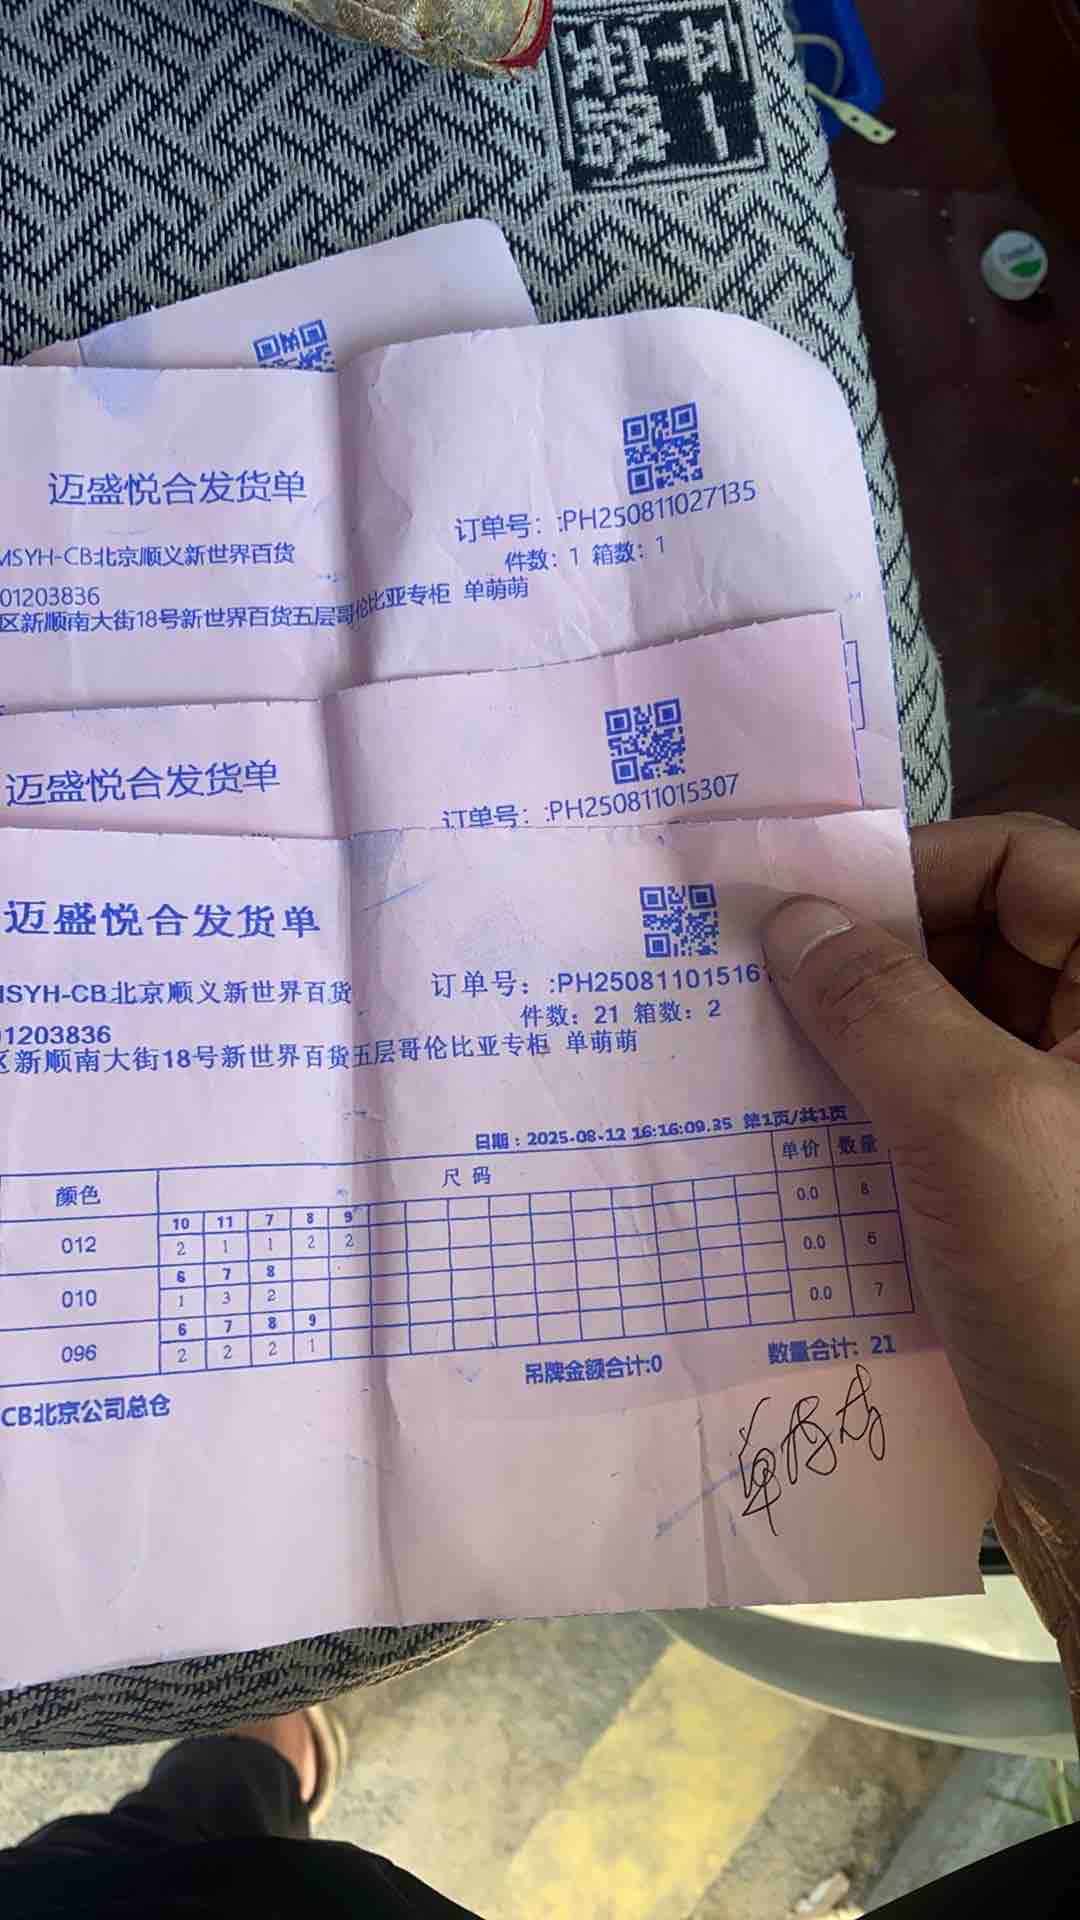 迈盛悦合发货单
订单号：:PH250811027135
MSYH-CB北京顺义新世界百货
件数：1 箱数：1
01203836
区新顺南大街18号新世界百货五层哥伦比亚专柜 单萌萌
迈盛悦合发货单
订单号：:PH250811015307
迈盛悦合发货单
ISYH-CB北京顺义新世界百货
订单号：:PH25081101516
件数：21 箱数：2
01203836
区新顺南大街18号新世界百货五层哥伦比亚专柜 单萌萌
日期：2025-08-12 16:16:09.35 第1页/共1页
颜色 尺码 单价 数量
10 11 7 8 9
012 2 1 1 2 2 0.0 8
6 7 8
010 1 3 2 0.0 6
6 7 8 9
096 2 2 2 1 0.0 7
吊牌金额合计:0 数量合计: 21
CB北京公司总仓